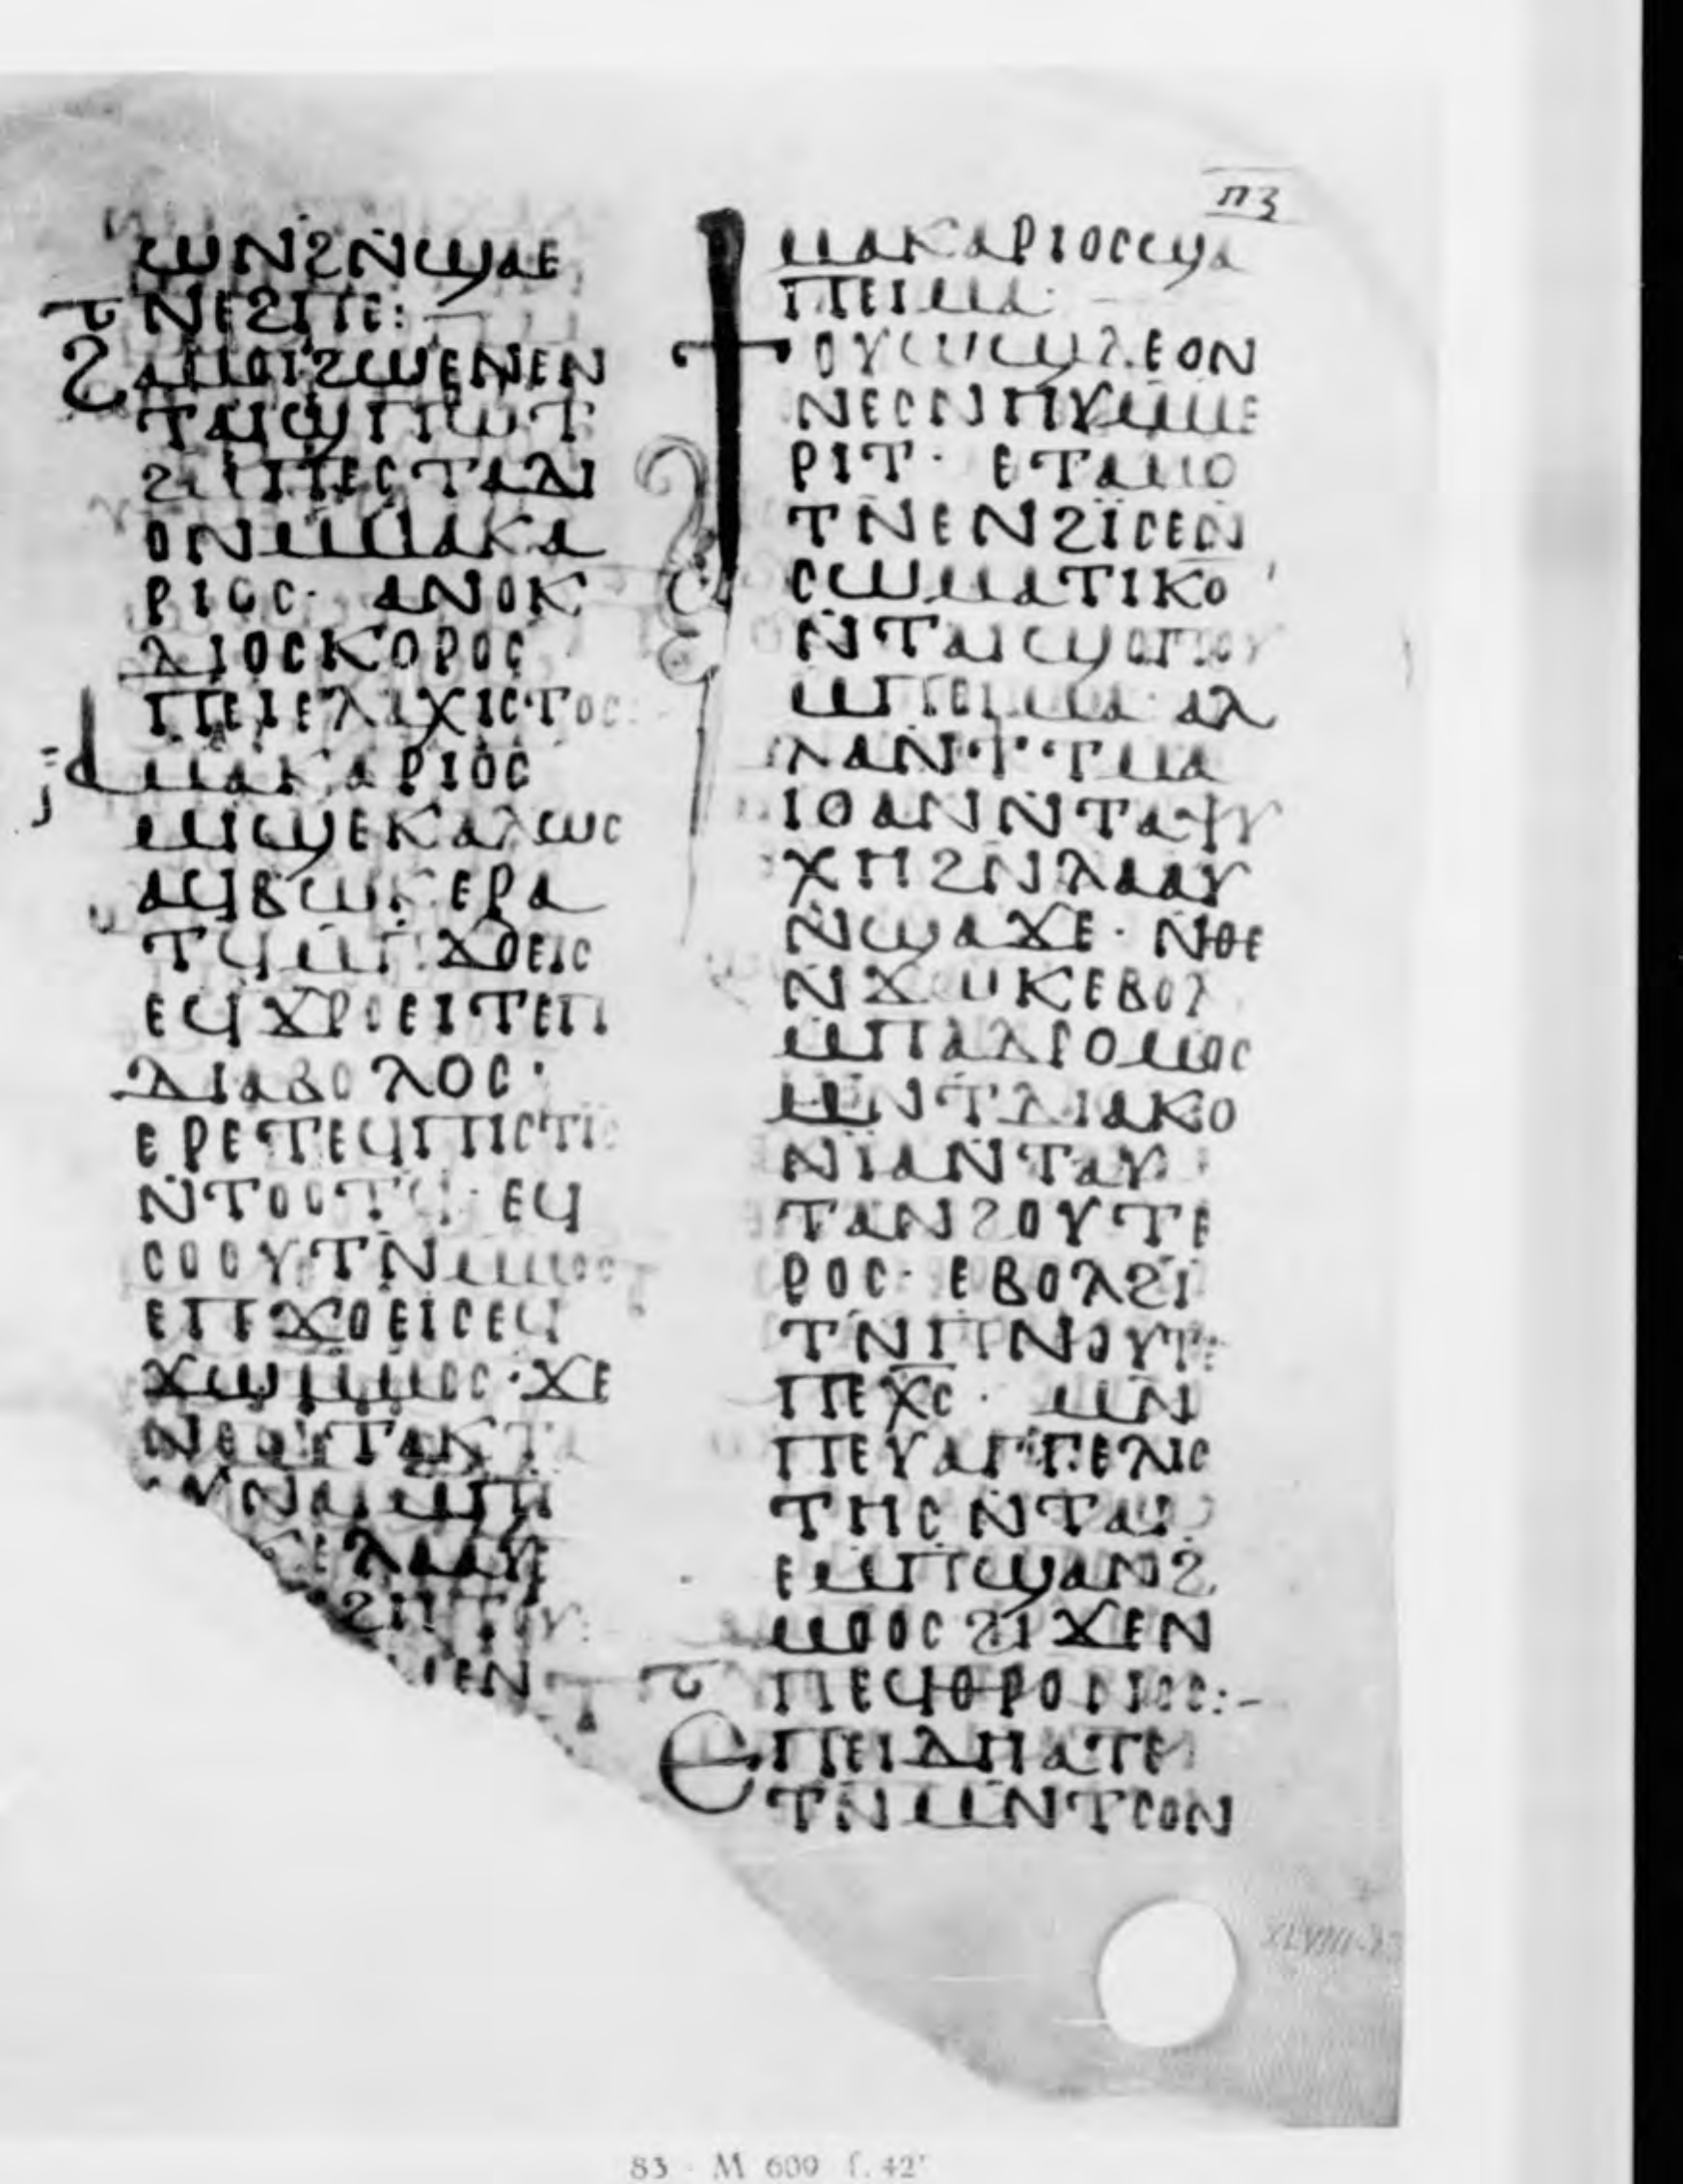 ⲡⲍ
ⲱⲛϩⲛ̄ϣⲁⲉ
ⲛⲉϩⲡⲉ:—
ϩⲁⲙⲟⲓϩⲱⲉⲛⲉⲛ
ⲧⲁⲓϣⲡⲱⲧ
ⲡⲉⲥⲧⲁⲇⲓ
ⲟⲛⲙ̄ⲙⲁⲕⲁ
ⲣⲓⲟⲥ· ⲁⲛⲟⲕ
ⲇⲓⲟⲥⲕⲟⲣⲟⲥ
ⲡⲉⲓⲉⲗⲁⲭⲓⲥⲧⲟⲥ:
ⲁⲙⲁⲕⲁⲣⲓⲟⲥ
ⲙⲓϣⲉⲕⲁⲗⲱⲥ
ⲁϥⲃⲱⲕⲉⲣⲁ
ⲧϥⲙ̄ⲡϫⲟⲉⲓⲥ
ⲉϥϫⲣⲟⲉⲓⲧⲉⲡ
ⲇⲓⲁⲃⲟⲗⲟⲥ·
ⲉⲣⲉⲧⲉϥⲡⲓⲥⲧⲓⲥ
ⲛ̄ⲧⲟⲟⲧϥ· ⲉϥ
ⲥⲟⲟⲩⲧⲛ̄ⲙ̄ⲙⲟⲥ
ⲉⲡϫⲟⲉⲓⲥⲉϥ
ϫⲱⲙ̄ⲙⲟⲥ·ϫⲉ
ⲛⲉⲛⲧⲁⲕⲧ
ⲛⲁⲓⲙ̄ⲡ
ⲗⲁⲁⲩ
ϩⲏⲧⲟⲩ:
ⲉⲛ
ⲙⲁⲕⲁⲣⲓⲟⲥϣⲁ
ⲡⲉⲓⲙⲁ·—
ϯⲟⲩⲱϣⲇⲉⲟⲛ
ⲛⲉⲥⲛⲏⲩⲙ̄ⲙⲉ
ⲣⲓⲧ· ⲉⲧⲁⲙⲟ
ⲧⲛ̄ⲉⲛϩⲓ̈ⲥⲉⲛ̄
ⲥⲱⲙⲁⲧⲓⲕⲟ
ⲛ̄ⲧⲁⲓϣⲟⲡⲟⲩ
ⲙ̄ⲡⲉⲓⲙⲁ· ⲁⲗ
ⲗⲁⲛ̄ϯⲧⲙⲁ
ⲓⲟⲁⲛⲛ̄ⲧⲁⲯⲩ
ⲭⲏϩⲛ̄ⲗⲁⲁⲩ
ⲛ̄ϣⲁϫⲉ· ⲛ̄ⲑⲉ
ⲛ̄ϫⲱⲕⲉⲃⲟⲗ
ⲙ̄ⲡⲁⲇⲣⲟⲙⲟⲥ
ⲙⲛ̄ⲧⲇⲓⲁⲕⲟ
ⲛⲓ̈ⲁⲛ̄ⲧⲁⲩ
ⲧⲁⲛϩⲟⲩⲧ ⲉ
ⲣⲟⲥ· ⲉⲃⲟⲗϩⲓ̈
ⲧⲙ̄ⲡⲛⲟⲩⲧⲉ
ⲡⲉⲭ̄ⲥ̄· ⲙⲛ̄
ⲡⲉⲩⲁⲅⲅⲉⲗⲓⲥ
ⲧⲏⲥⲛ̄ⲧⲁⲓⲣ
ⲉⲙ̄ⲡϣⲁⲛϩ
ⲙⲟⲟⲥϩⲓϫⲉⲛ
ⲡⲉϥⲑⲣⲟⲛⲟⲥ:—
ⲉⲡⲉⲓⲇⲏⲁⲧⲉ
ⲧⲛ̄ⲙⲛ̄ⲧⲥⲟⲛ
XLVIII
83 - M 600 f. 42ʳ